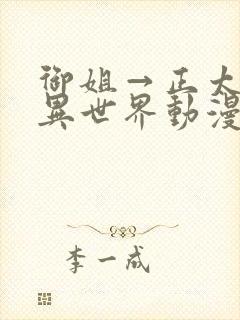 御姐→正太
異世界動漫
李一成